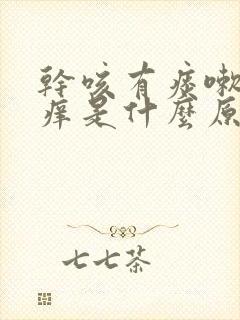 幹咳有痰嗽
癢是什麼原
七七茶